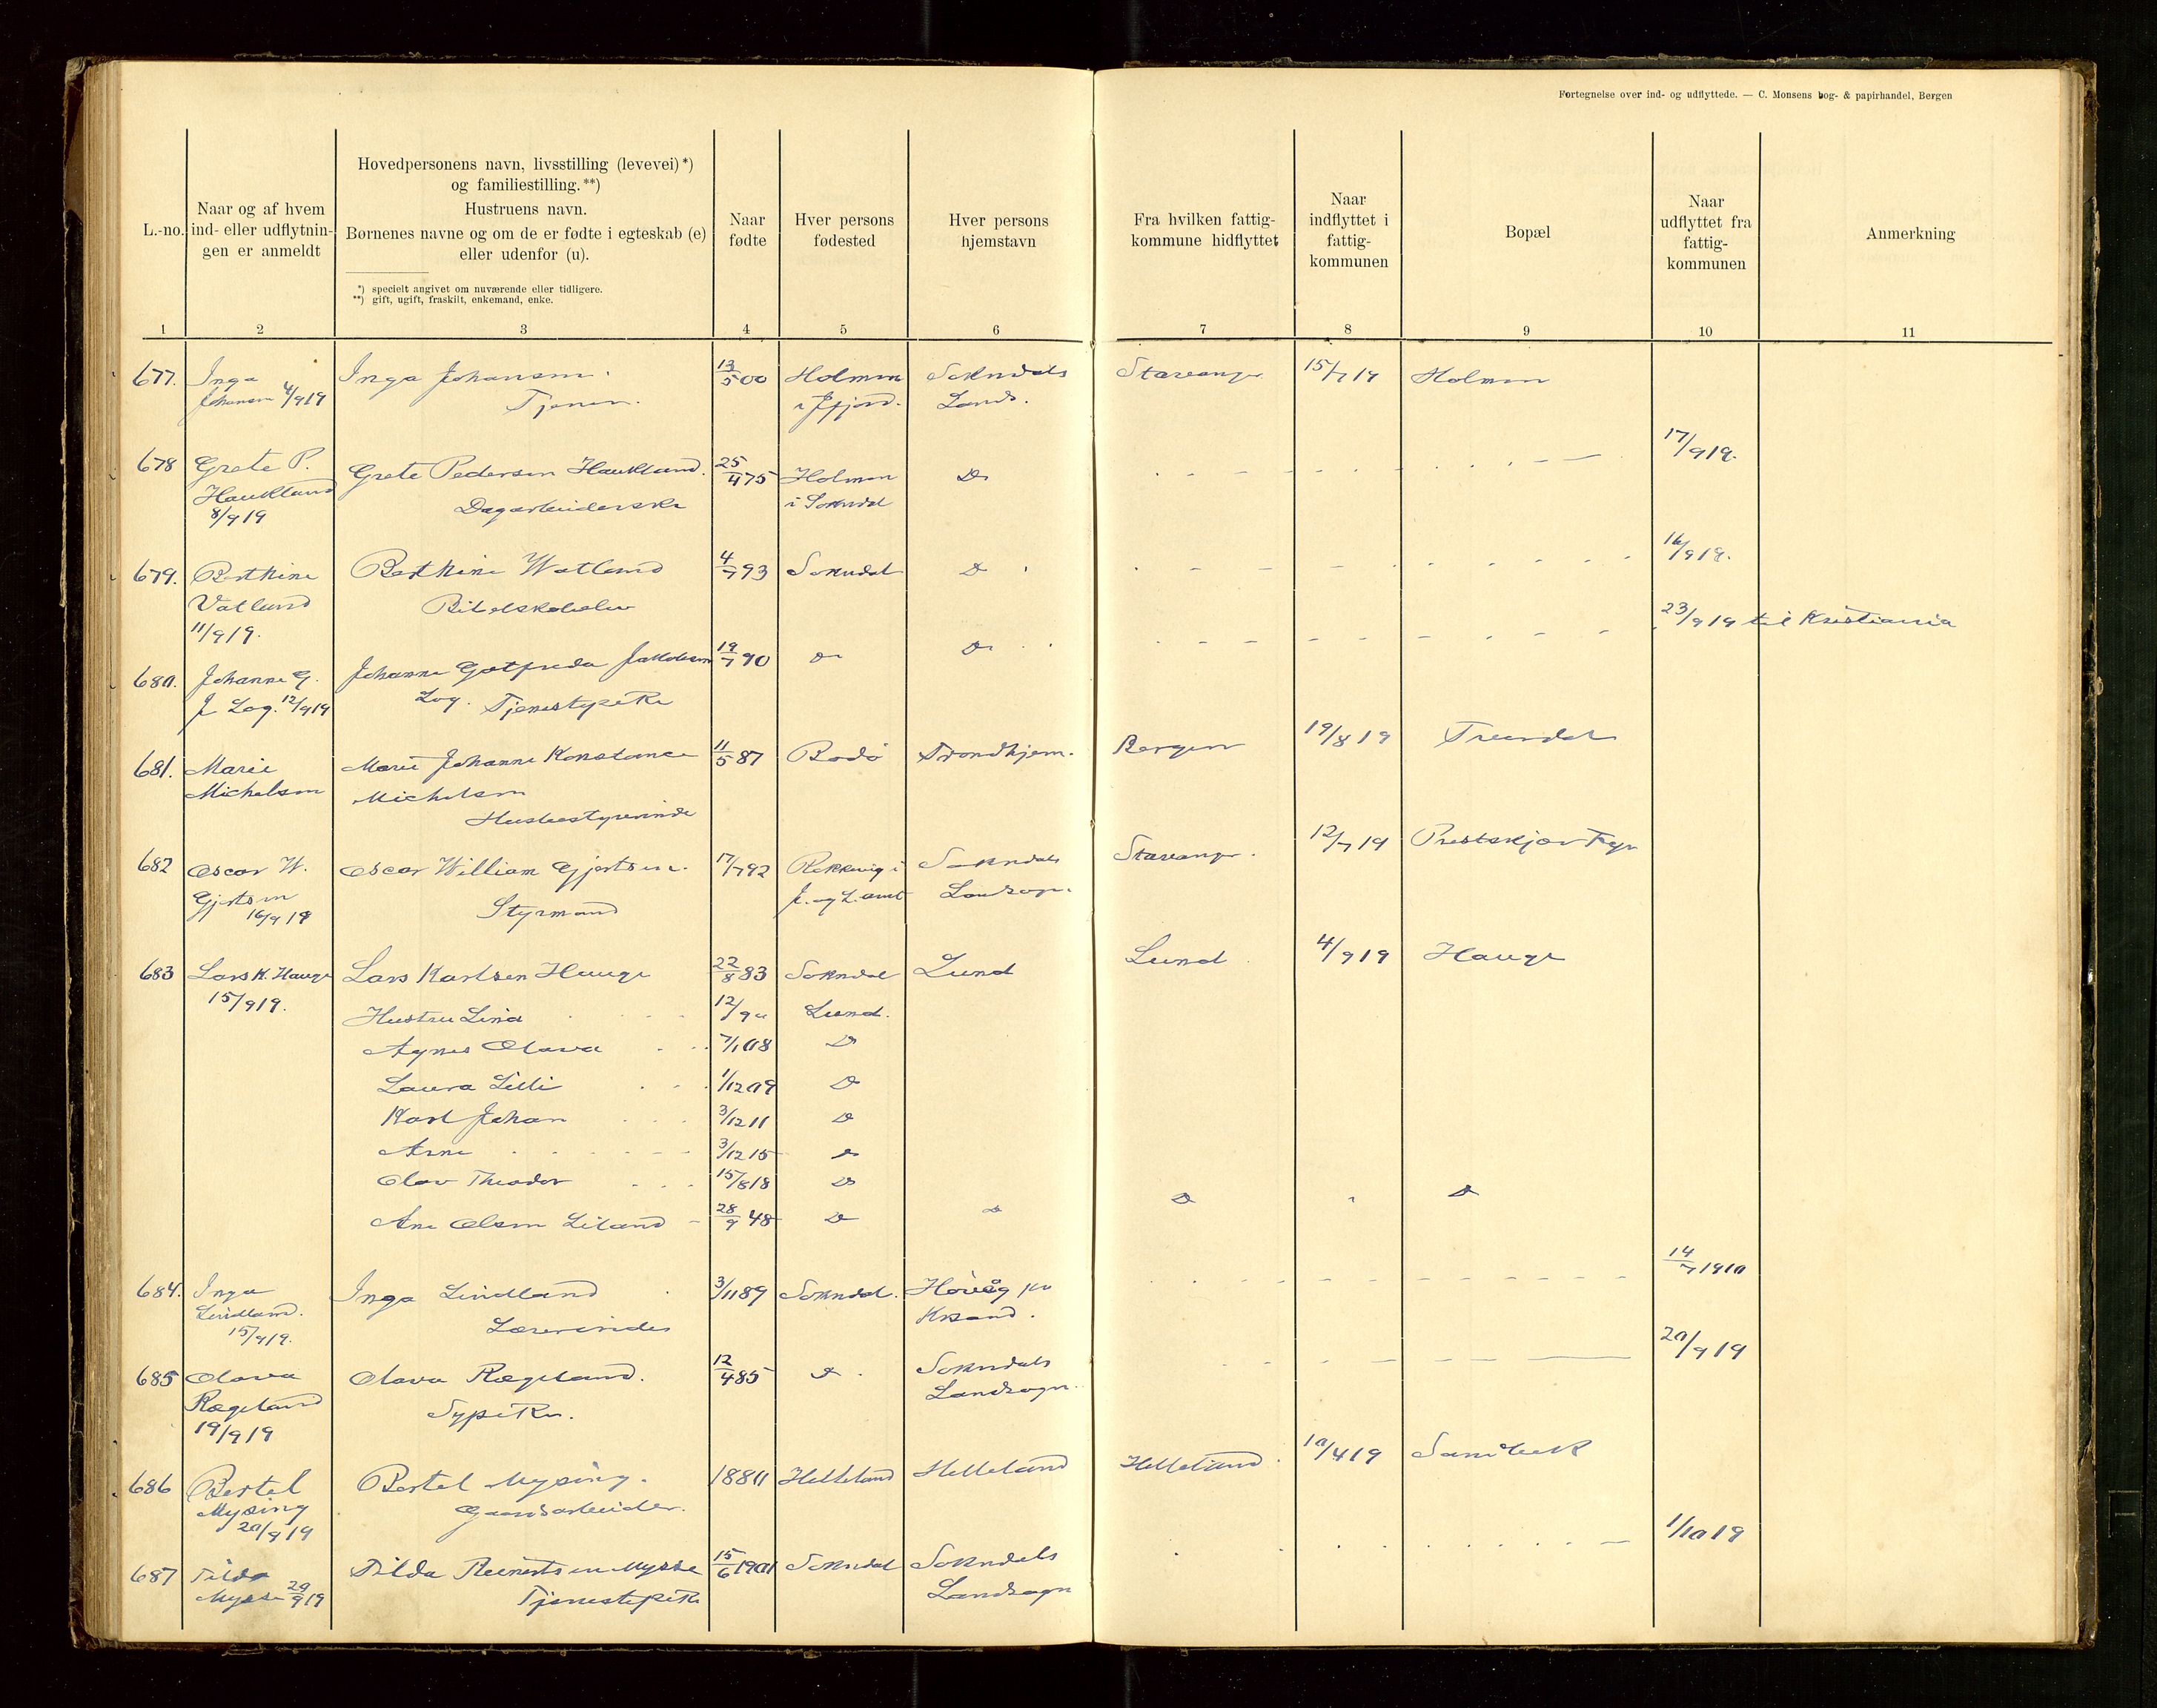 Fortegnelse over ind- og udflyttede. — C. Monsens bog- & papirhandel, Bergen
L.-no.
Naar og af hvem
ind- eller udflytnin-
gen er anmeldt
Hovedpersonens navn, livsstilling (levevei)*)
og familiestilling.**)
Hustruens navn.
Børnenes navne og om de er fødte i egteskab (e)
eller udenfor (u).
*) specielt angivet om nuværende eller tidligere.
**) gift, ugift, fraskilt, enkemand, enke.
Naar
fødte
Hver persons
fødested
Hver persons
hjemstavn
Fra hvilken fattig-
kommune hidflyttet
Naar
indflyttet i
fattig-
kommunen
Bopæl
Naar
udflyttet fra
fattig-
kommunen
Anmerkning
1 2 3 4 5 6 7 8 9 10 11
677. Inga Inga Johansen. 13/5 00 Holmen Sokndals Stavanger 15/7 19 Holmen
Johansen 4/9 19 Tjener. i Jfjord. Lands.
678 Grete P. Grete Pedersen Haukland. 25/4 75 Holmen Do 17/9 19.
Haukland Dagarbeiderske i Sokndal
8/9 19
679. Berthine Berthine Watland 4/7 93 Sokndal Do 16/9 19.
Vatland Bibelskoleelev
11/9 19.
680. Johanne G. Johanne Gotfreda Jakobsen 19/7 90 Do Do 23/9 19 til Kristiania
J Log. 12/9 19 Log. Tjenestepike
681. Marie Marie Johanne Konstance 11/5 87 Bodø Trondhjem. Bergen 19/8 19
Michelsen Michelsen
Husbestyrerinde
682 Oscar W. Oscar William Gjertsen. 17/7 92 Rekkevig i Sokndals Stavanger. 12/7 19 Prestskjær Fyr
Gjertsen Styrmand J. og L. amt Landsogn.
16/9 19
683 Lars K. Hauge Lars Karlsen Hauge 22/8 83 Sokndal Lund Lund 4/9 19 Hauge
15/9 19. Hustru Lina Lund.
Agnes Olava 7/1 08 Do
Laura Lilli 1/12 09 Do
Karl Johan 3/12 11 Do
Arne 3/12 15 Do
Olav Theodor 15/8 18 Do
Ane Olsen Liland 28/9 48 Do Do Do Do
684. Inga Inga Lindland 3/11 89 Sokndal. Høvåg pr 14/7 1910
Lindland. Lærerinde Krsand.
15/9 19.
685 Olava Olava Rægeland. 12/4 85 Do Sokndals 20/9 19
Rægeland Sypike. Landsogn.
19/9 19
686 Bertel Bertel Mysing. 1880 Helleland Helleland Helleland. 10/4 19 Sandbek
Mysing Gaardsarbeider.
20/9 19
687 Tilda Tilda Reinertsen Mysse 15/6 1901 Sokndal Sokndals 1/10 19
Mysse 29/9 19 Tjenestepike Landsogn